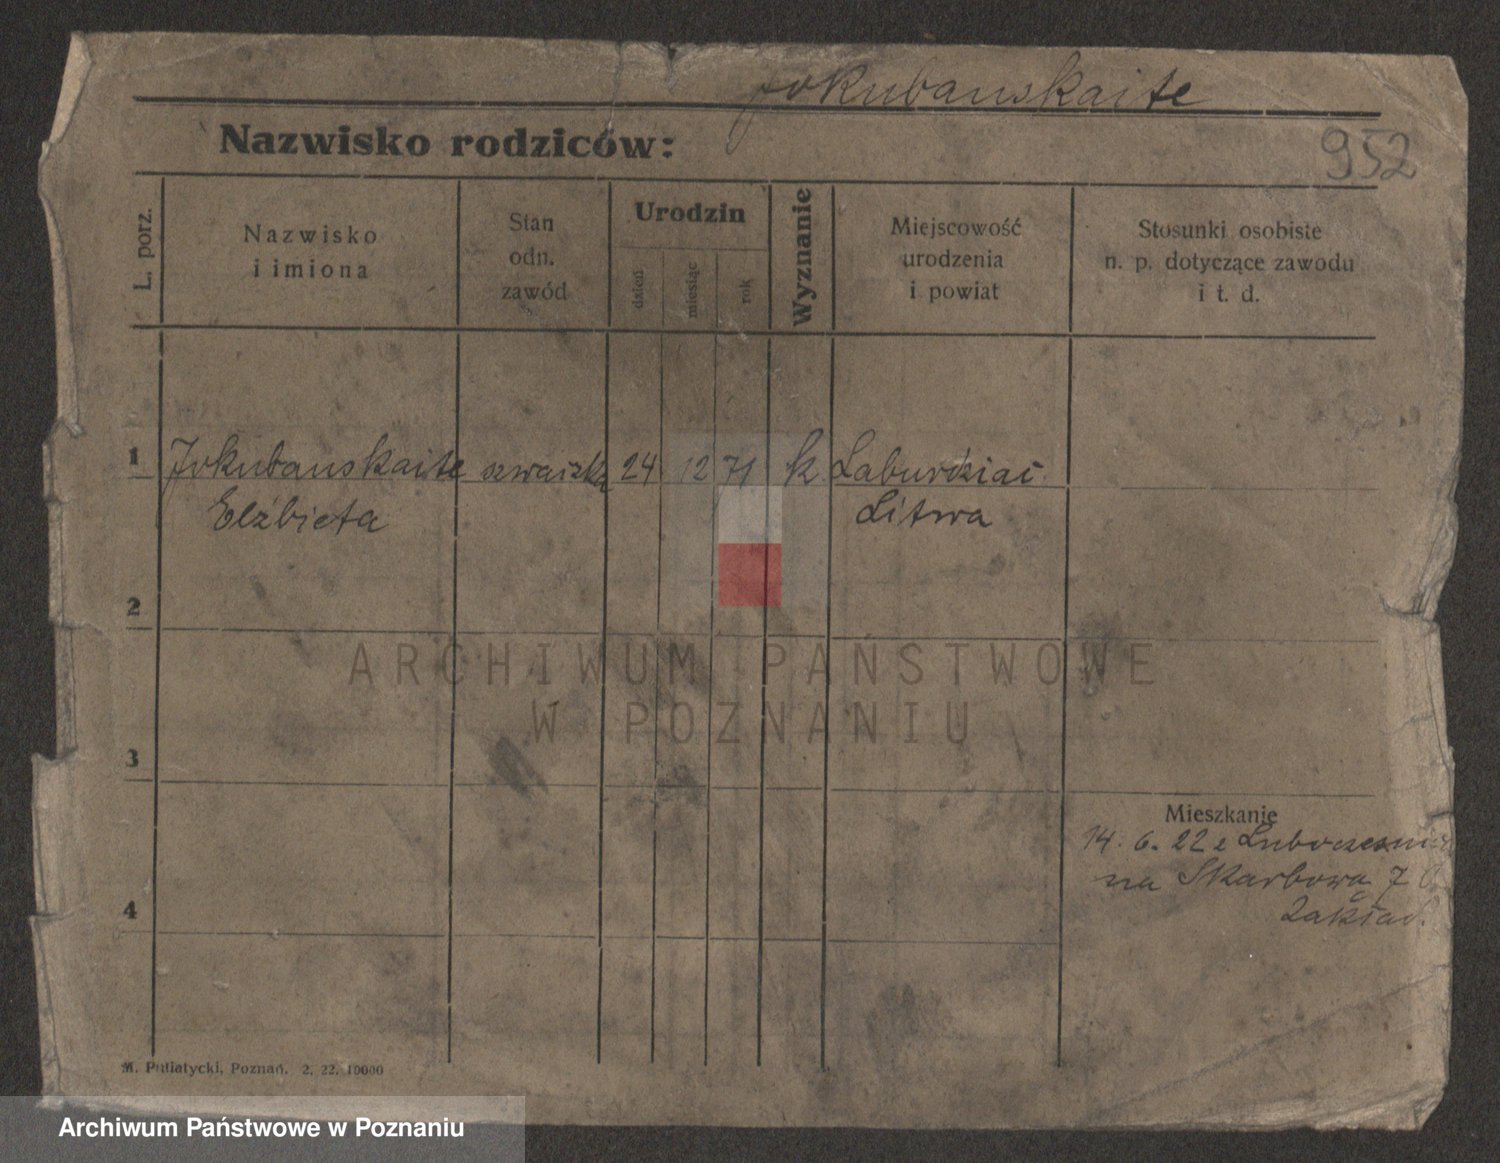 Jokubauskaite
Nazwisko rodziców:
952
L. porz.
Nazwisko
i imiona
Stan
odn.
zawód
Urodzin
dzień
miesiąc
rok
Wyznanie
Miejscowość
urodzenia
i powiat
Stosunki osobiste
n. p. dotyczące zawodu
i t. d.
1 Jokubauskaite szwaczka 24 12 71 k Laburdziai
Elżbieta Litwa
2
ARCHIWUM PAŃSTWOWE
W POZNANIU
3
Mieszkanie
14. 6. 22 z
na Skarbowa 7
Zakład.
4
M. Putiatycki, Poznań. 2. 22. 10000
Archiwum Państwowe w Poznaniu